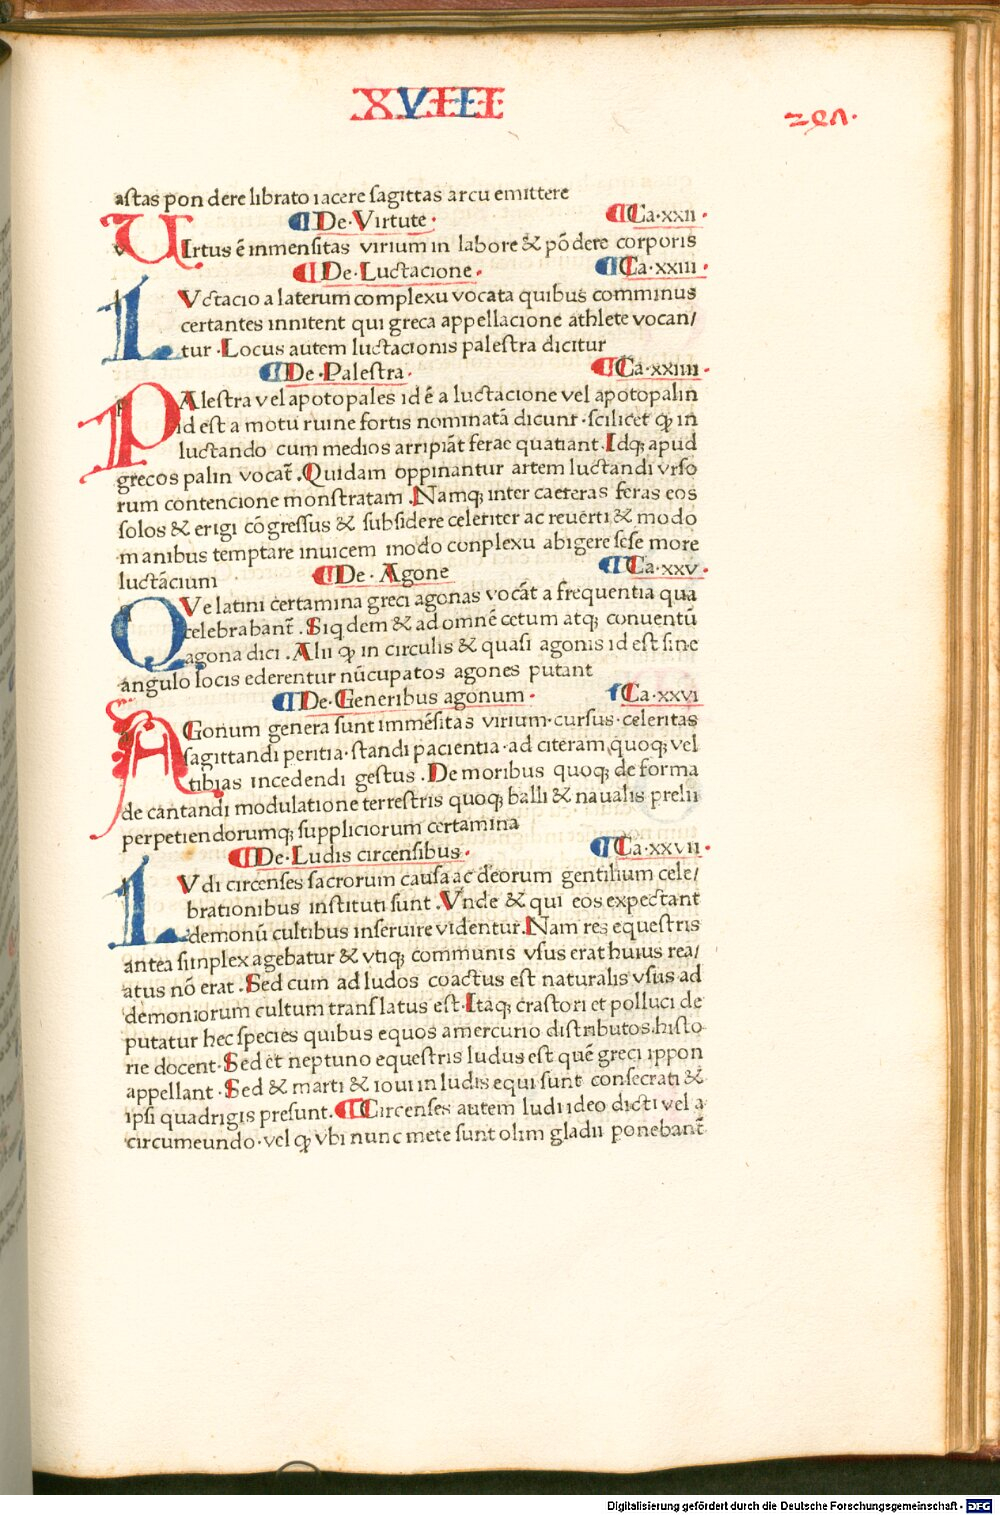 XVIII
291.
astas pon dere librato iacere sagittas arcu emittere
De·Virtute· Ca·xxii·
VIrtus ē inmensitas virium in labore & pōdere corporis
De·Luctacione· Ca·xxiii·
LVctacio a laterum complexu vocata quibus comminus
certantes innitent qui greca appellacione athlete vocan/
tur·Locus autem luctacionis palestra dicitur
De·Palestra· Ca·xxiiii·
PAlestra vel apotopales id ē a luctacione vel apotopalin
id est a motu ruine fortis nominatā dicunt·scilicet ꝙ in
luctando cum medios arripiāt ferae quatiant·Idqꝫ apud
grecos palin vocat̄·Quidam oppinantur artem luctandi vrso
rum contencione monstratam·Namqꝫ inter caeteras feras eos
solos & erigi cōgressus & subsidere celeriter ac reuerti & modo
manibus temptare inuicem modo conplexu abigere sese more
luctācium De·Agone Ca·xxv·
QVe latini certamina greci agonas vocāt a frequentia qua
celebrabant̄·Siqdem & ad omnē cetum atqꝫ conuentū
agona dici·Alii ꝙ in circulis & quasi agonis id est sine
angulo locis ederentur nūcupatos agones putant
De·Generibus agonum· Ca·xxvi
AGonum genera sunt immēsitas virium·cursus·celeritas
sagittandi peritia·standi pacientia·ad citeram quoqꝫ vel
tibias incedendi gestus·De moribus quoqꝫ de forma
de cantandi modulatione terrestris quoqꝫ balli & naualis prelii
perpetiendorumqꝫ suppliciorum certamina
De·Ludis circensibus· Ca·xxvii·
LVdi circenses sacrorum causa ac deorum gentilium cele/
brationibus instituti sunt·Vnde & qui eos expectant
demonū cultibus inseruire videntur·Nam res equestris
antea simplex agebatur & vtiqꝫ communis vsus erat huius rea/
atus nō erat·Sed cum ad ludos coactus est naturalis vsus ad
demoniorum cultum translatus est·Itaqꝫ crastori et polluci de
putatur hec species quibus equos amercurio distributos·histo
rie docent·Sed et neptuno equestris ludus est quē greci ippon
appellant·Sed & marti & ioui in ludis equi sunt consecrati &
ipsi quadrigis presunt·Circenses autem ludi ideo dicti vel a
circumeundo·vel ꝙ vbi nunc mete sunt olim gladii ponebant̄
Digitalisierung gefördert durch die Deutsche Forschungsgemeinschaft - DFG